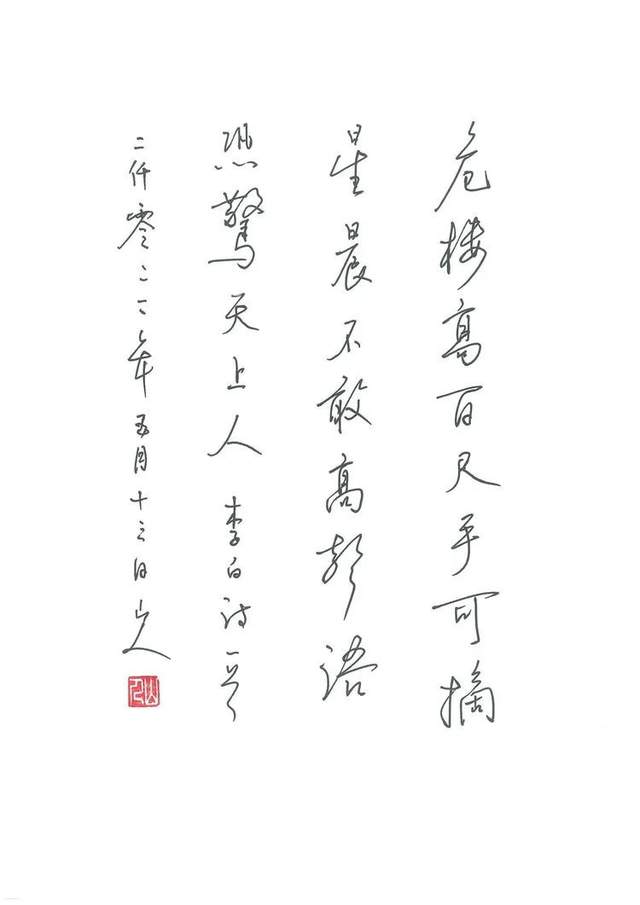 危楼高百尺手可摘
星晨不敢高聲语
恐驚天上人 李白诗一首
二仟零二二年五月十三日 山人
山人